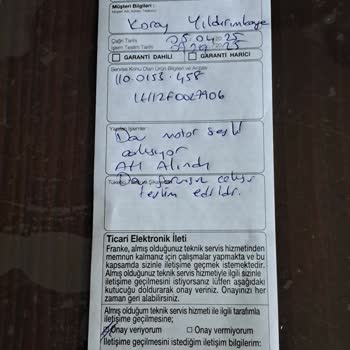 Müşteri Bilgileri :
Koray Yıldırımkaya
Çağrı Tarihi 25.04.2025
İşlem Teslim Tarihi
GARANTİ DAHİLİ GARANTİ HARİCİ
Servise Konu Olan Ürün Bilgileri ve Arızası
110.0153.458
Yapılan İşlemler
Dav motor sesli
çalışıyor
Alındı
teslim edildi.
Ticari Elektronik İleti
Franke, almış olduğunuz teknik servis hizmetinden
memnun kalmanız için çalışmalar yapmakta ve bu
kapsamda sizinle iletişime geçmek istemektedir.
Almış olduğunuz teknik servis hizmetiyle ilgili sizinle
iletişime geçilmesini istiyorsanız lütfen aşağıdaki
kutucuğu doldurarak onay veriniz. Onayınızı her
zaman geri alabilirsiniz.
Almış olduğum teknik servis hizmeti ile ilgili tarafımla
iletişime geçilmesine;
Onay veriyorum Onay vermiyorum
İletişime geçilmesini istediğim iletişim bilgilerim: